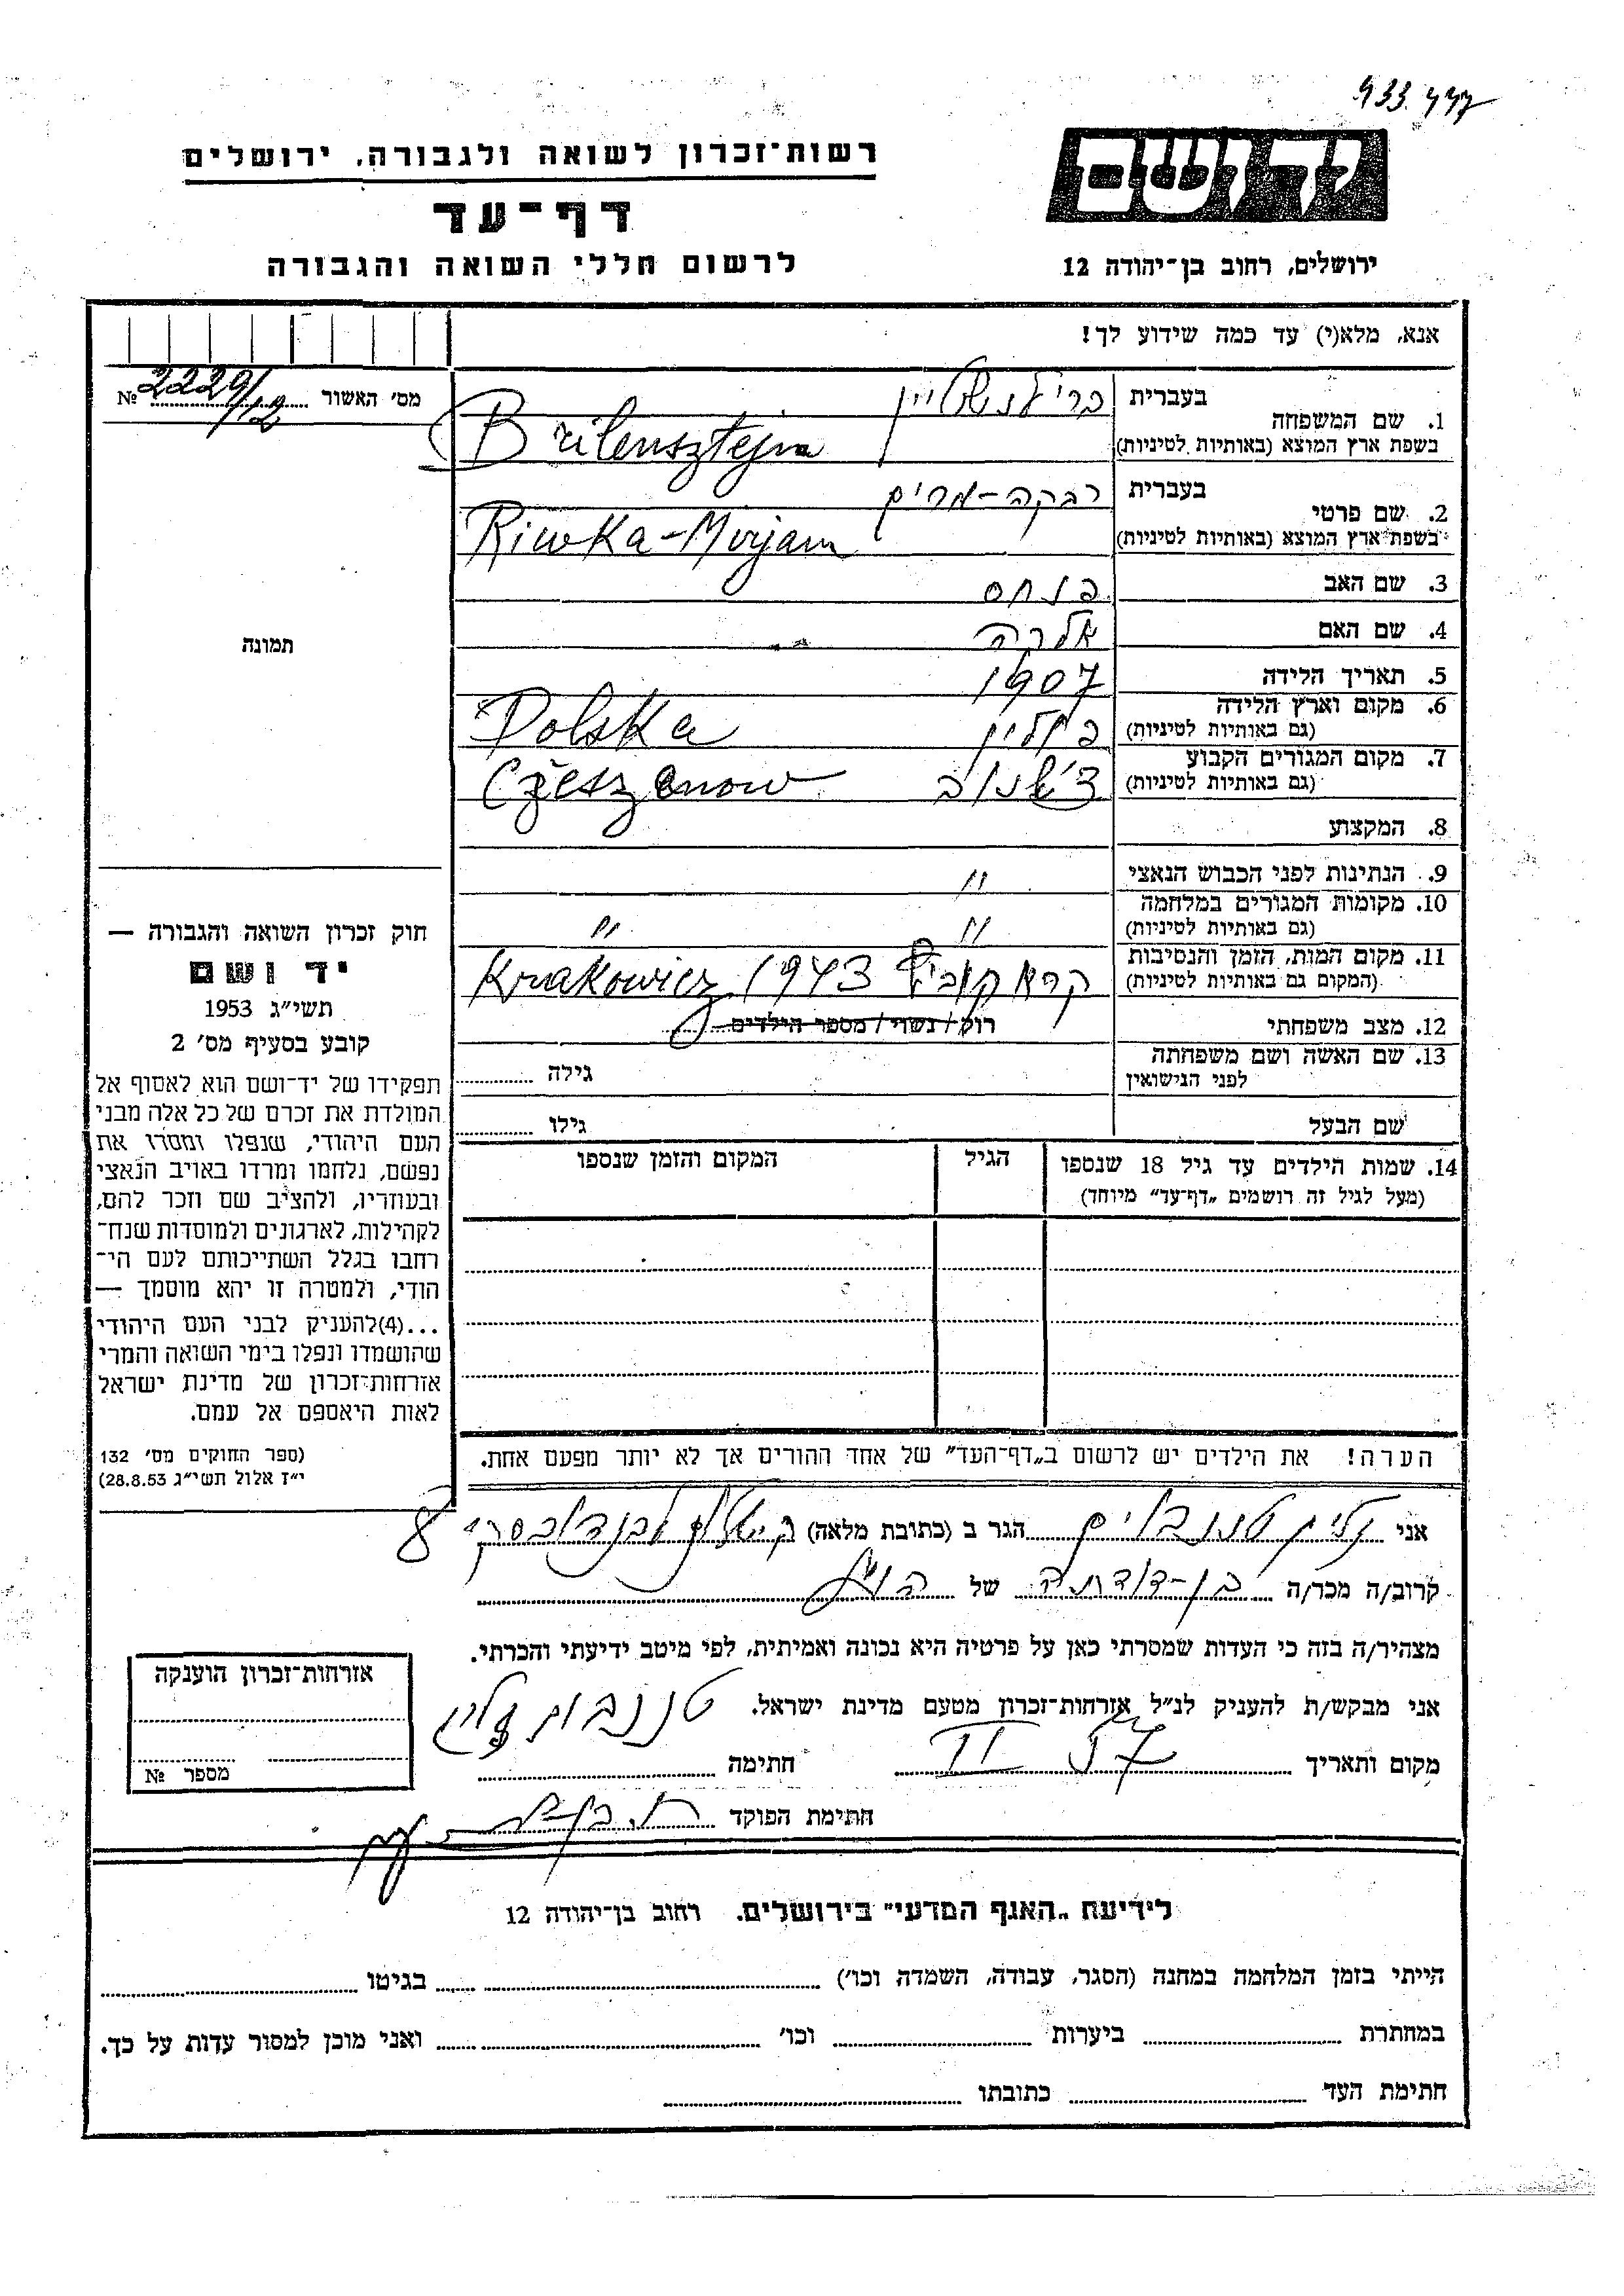 933.447
רשות־זכרון לשואה ולגבורה, ירושלים
יד ושם
דף־עד
לרשום חללי השואה והגבורה
ירושלים, רחוב בן־יהודה 12
אנא, מלא(י) עד כמה שידוע לך!
מס' האשור № 2229/12
1. שם המשפחה בעברית ברילנשטיין
בשפת ארץ המוצא (באותיות לטיניות) Brilensztejn
2. שם פרטי בעברית רבקה-מרים
בשפת ארץ המוצא (באותיות לטיניות) Riwka-Mirjam
3. שם האב פנחס
4. שם האם אלקה
5. תאריך הלידה 1907
6. מקום וארץ הלידה פולין Polska
(גם באותיות לטיניות)
7. מקום המגורים הקבוע צ'שנוב Czeszanow
(גם באותיות לטיניות)
8. המקצוע
9. הנתינות לפני הכבוש הנאצי "
10. מקומות המגורים במלחמה " "
(גם באותיות לטיניות)
11. מקום המות, הזמן והנסיבות קראקוביץ 1943 Krakowicz
(המקום גם באותיות לטיניות)
12. מצב משפחתי רוק/נשוי/מספר הילדים
13. שם האשה ושם משפחתה גילה
לפני הנישואין
שם הבעל גילו
תמונה
חוק זכרון השואה והגבורה —
יד ושם
תשי״ג 1953
קובע בסעיף מס' 2
תפקידו של יד־ושם הוא לאסוף אל
המולדת את זכרם של כל אלה מבני
העם היהודי, שנפלו ומסרו את
נפשם, נלחמו ומרדו באויב הנאצי
ובעוזריו, ולהציב שם וזכר להם,
לקהילות, לארגונים ולמוסדות שנח־
רחבו בגלל השתייכותם לעם הי־
הודי, ולמטרה זו יהא מוסמך —
...(4)להעניק לבני העם היהודי
שהושמדו ונפלו בימי השואה והמרי
אזרחות־זכרון של מדינת ישראל
לאות היאספם אל עמם.
(ספר החוקים מס' 132
י״ז אלול תשי״ג 28.8.53)
14. שמות הילדים עד גיל 18 שנספו הגיל המקום והזמן שנספו
(מעל לגיל זה רושמים „דף־עד״ מיוחד)
הערה! את הילדים יש לרשום ב„דף־העד״ של אחד ההורים אך לא יותר מפעם אחת.
אני זליג טננבוים הגר ב (כתובת מלאה) 8
קרוב/ה מכר/ה בן-דודתה של
מצהיר/ה בזה כי העדות שמסרתי כאן על פרטיה היא נכונה ואמיתית, לפי מיטב ידיעתי והכרתי.
אני מבקש/ת להעניק לנ״ל אזרחות־זכרון מטעם מדינת ישראל.
מקום ותאריך II 57 חתימה טננבוים זליג
חתימת הפוקד
אזרחות־זכרון הוענקה
מספר №
לידיעת „האגף המדעי״ בירושלים. רחוב בן־יהודה 12
הייתי בזמן המלחמה במחנה (הסגר, עבודה, השמדה וכו') בגיטו
במחתרת ביערות וכו' ואני מוכן למסור עדות על כך.
חתימת העד כתובתו